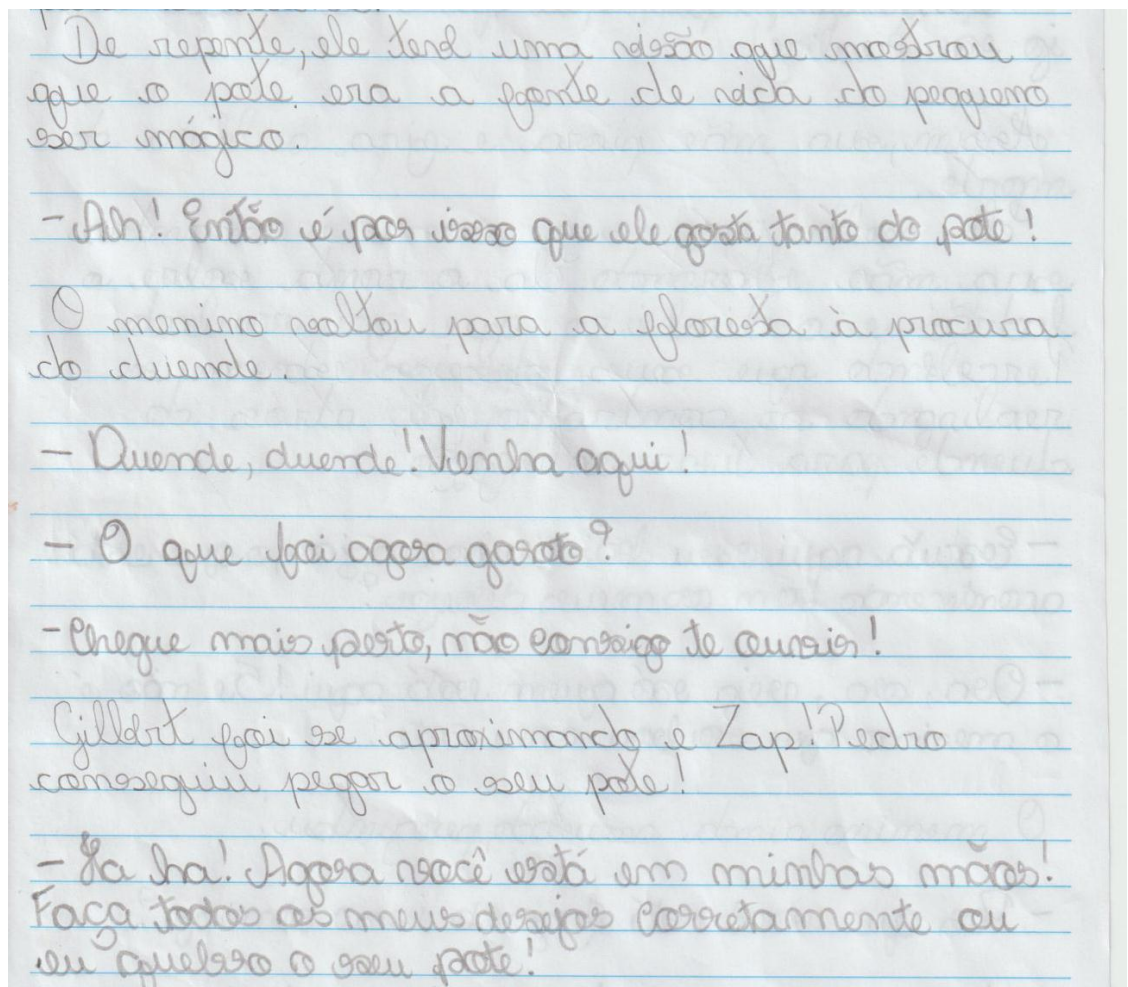 De repente, ele teve uma visão que mostrou
que o pote era a fonte de vida do pequeno
ser mágico.
- Ah! Então é por isso que ele gosta tanto do pote!
O menino voltou para a floresta à procura
do duende.
- Duende, duende! Venha aqui!
- O que foi agora garoto?
- Chegue mais perto, não consigo te ouvir!
Gilbert foi se aproximando e Zap! Pedro
conseguiu pegar o seu pote!
- Ha ha! Agora você está em minhas mãos!
Faça todos os meus desejos corretamente ou
eu quebro o seu pote!